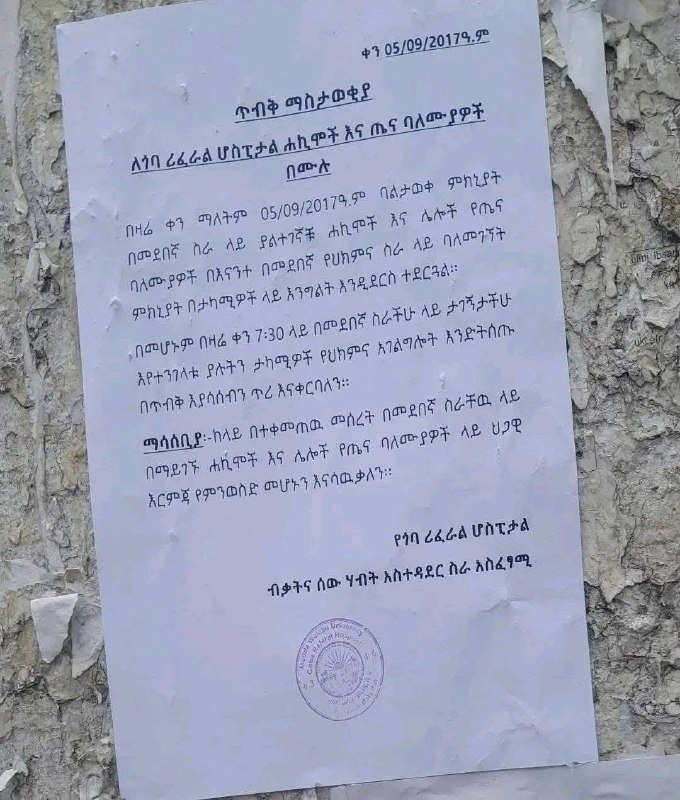 ቀን 05/09/2017ዓ.ም
ጥብቅ ማስታወቂያ
ለጎባ ሪፈራል ሆስፒታል ሐኪሞች እና ጤና ባለሙያዎች
በሙሉ
በዛሬ ቀን ማለትም 05/09/2017ዓ.ም ባልታወቀ ምክኒያት
በመደበኛ ስራ ላይ ያልተገኛቹ ሐኪሞች እና ሌሎች የጤና
ባለሙያዎች በእናንተ በመደበኛ የህክምና ስራ ላይ ባለመገኘት
ምክኒያት በታካሚዎች ላይ እንግልት እንዲደርስ ተደርጓል።
በመሆኑም በዛሬ ቀን 7:30 ላይ በመደበኛ ስራችሁ ላይ ታገኝታችሁ
እየተንገላቱ ያሉትን ታካሚዎች የህክምና አገልግሎት እንድትሰጡ
በጥብቅ እያሳሰብን ጥሪ እናቀርባለን።
ማሳሰቢያ፡-ከላይ በተቀመጠዉ መሰረት በመደበኛ ስራቸዉ ላይ
በማይገኙ ሐኪሞች እና ሌሎች የጤና ባለሙያዎች ላይ ህጋዊ
እርምጃ የምንወስድ መሆኑን እናሳዉቃለን።
የጎባ ሪፈራል ሆስፒታል
ብቃትና ሰው ሃብት አስተዳደር ስራ አስፈፃሚ
Madda Walabu University
Goba Referral Hospital